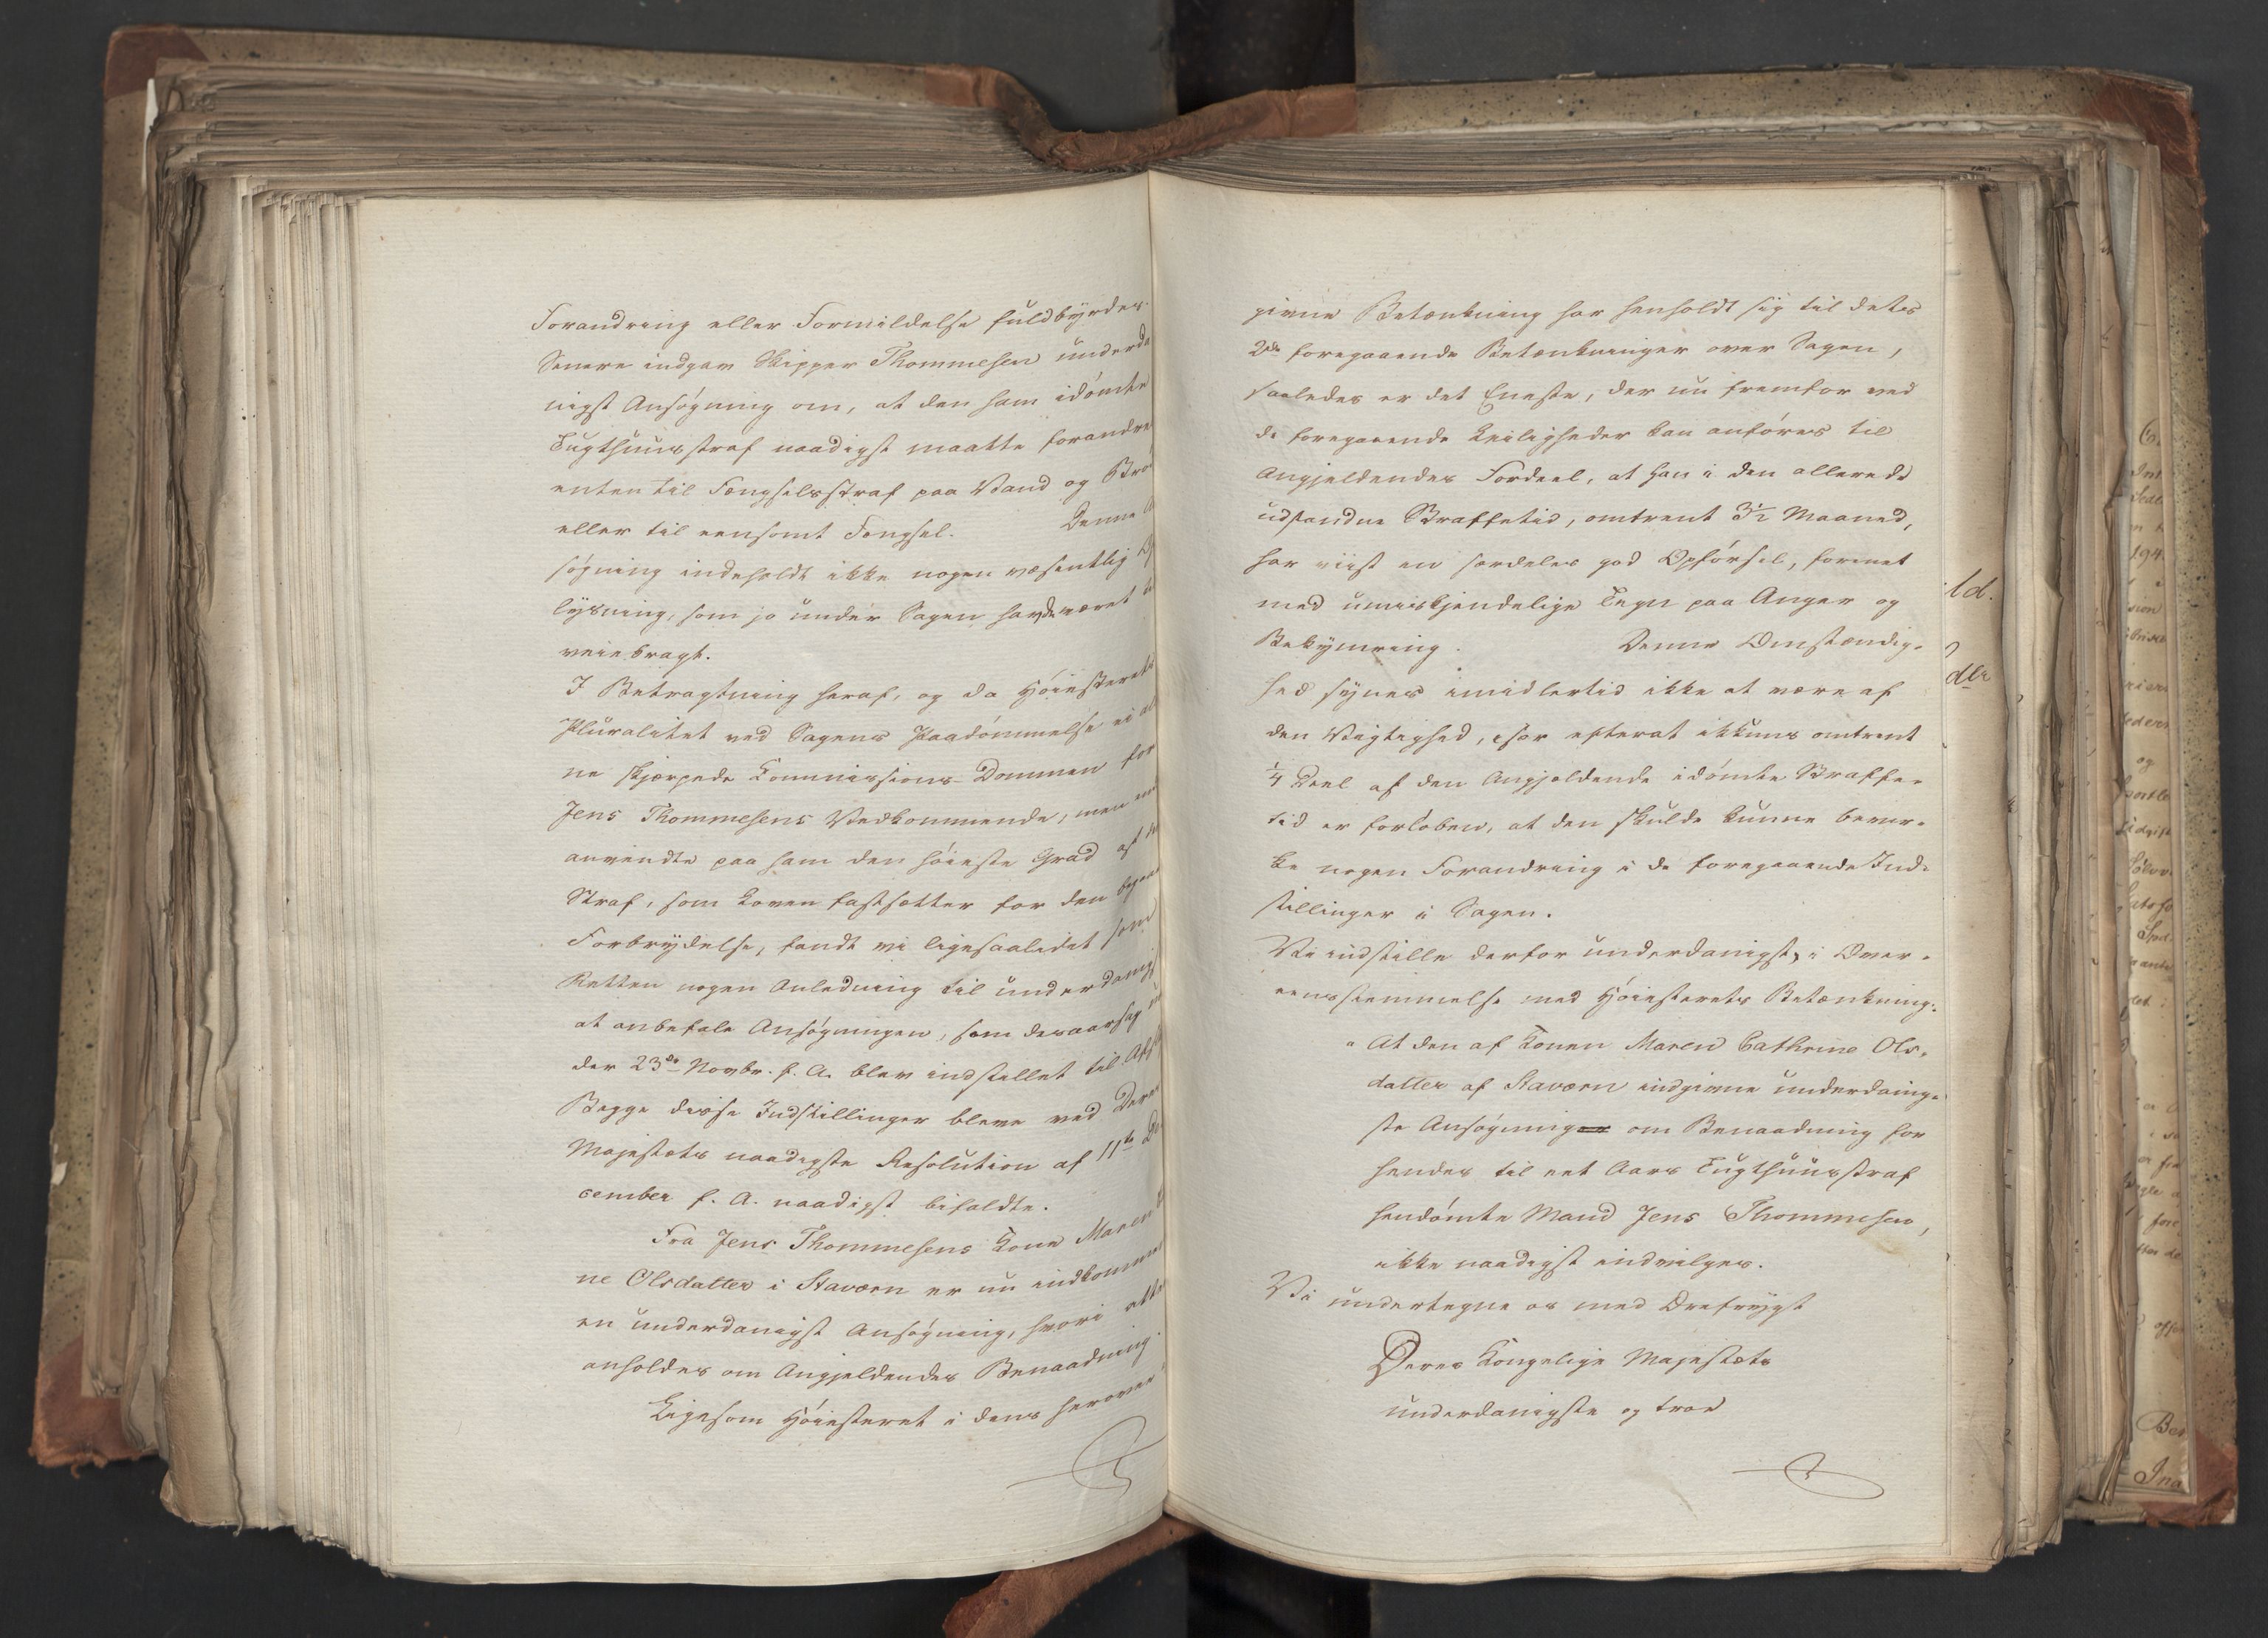 Forandring eller Formildelse fuldbyrdes.
Senere indgav Skipper Thommesen underda
nigst Ansøgning om, at den ham idømte
Tugthuusstraf naadigst maatte forandre
enten til Fængselsstraf paa Vand og Brø
eller til eensomt Fængsel. Denne A
søgning indeholdt ikke nogen væsentlig O
lysning, som jo under Sagen havde været
veiebragt.
I Betragtning heraf, og da Høiesterets
Pluralitet ved Sagens Paadømmelse ei al
ne skjærpede Commissions-Dommen for
Jens Thommesens Vedkommende, men
anvendte paa ham den høieste Grad af
Straf, som Loven fastsætter for den
Forbrydelse, fandt vi ligesaalidet som
Retten nogen Anledning til underdanigs
at anbefale Ansøgningen, som desaarsag
der 23de Novbr. f. A. blev indstillet til Afs
Begge disse Indstillinger bleve ved Deres
Majestæts naadigste Resolution af 11te De
cember f. A. naadigst bifaldte.
Fra Jens Thommesens Kone Maren
ne Olsdatter i Staværn er nu indkommen
en underdanigst Ansøgning, hvori atter
anholdes om Angjeldendes Benaadning.
Ligesom Høiesteret i dens herover
givne Betænkning har henholdt sig til dets
2de foregaaende Betænkninger over Sagen,
saaledes er det Eneste, der nu fremfor ved
de foregaaende Leiligheder kan anføres til
Angjeldendes Fordeel, at han i den allerede
udstandne Straffetid, omtrent 3½ Maaned,
har viist en særdeles god Opførsel, forenet
med umiskjendelige Tegn paa Anger og
Bekymring. Denne Omstændig-
hed synes imidlertid ikke at være af
den Vigtighed, især efterat ikkuns omtrent
¼ Deel af den Angjeldende idømte Straffe-
tid er forløben, at den skulde kunne bevir-
ke nogen Forandring i de foregaaende Ind-
stillinger i Sagen.
Vi indstille derfor underdanigst, i Over-
eensstemmelse med Høiesterets Betænkning:
"At den af Konen Maren Cathrine Ols-
datter af Staværn indgivne underdanig-
ste Ansøgning om Benaadning for
hendes til eet Aars Tugthuusstraf
hendømte Mand Jens Thommesen,
ikke naadigst indvilges.
Vi undertegne os med Ærefrygt
Deres Kongelige Majestæts
underdanigste og troe